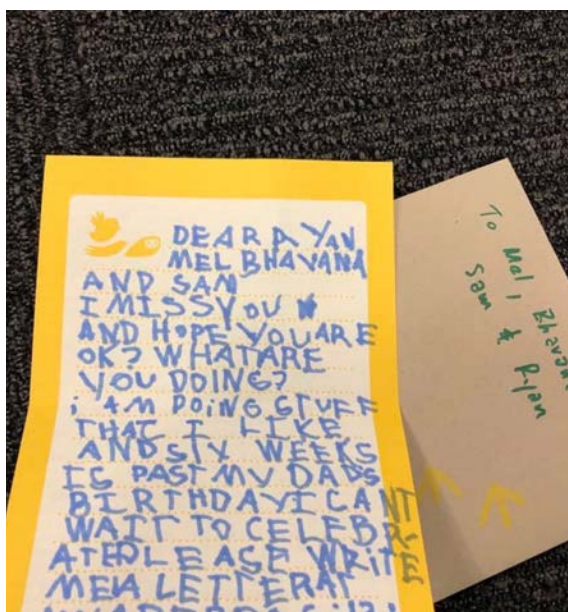 DEAR RAYAN
MEL BHAVANA
AND SAN
I MISS YOU
AND HOPE YOU ARE
OK? WHAT ARE
YOU DOING?
i AM DOING STUFF
THAT I LIKE
AND SIX WEEKS
IS PAST MY DADS
BIRTHDAY I CANT
WAIT TO CELEBR
ATE PLEASE WRITE
ME A LETTER AT
To Mel,
Sam & Rylan